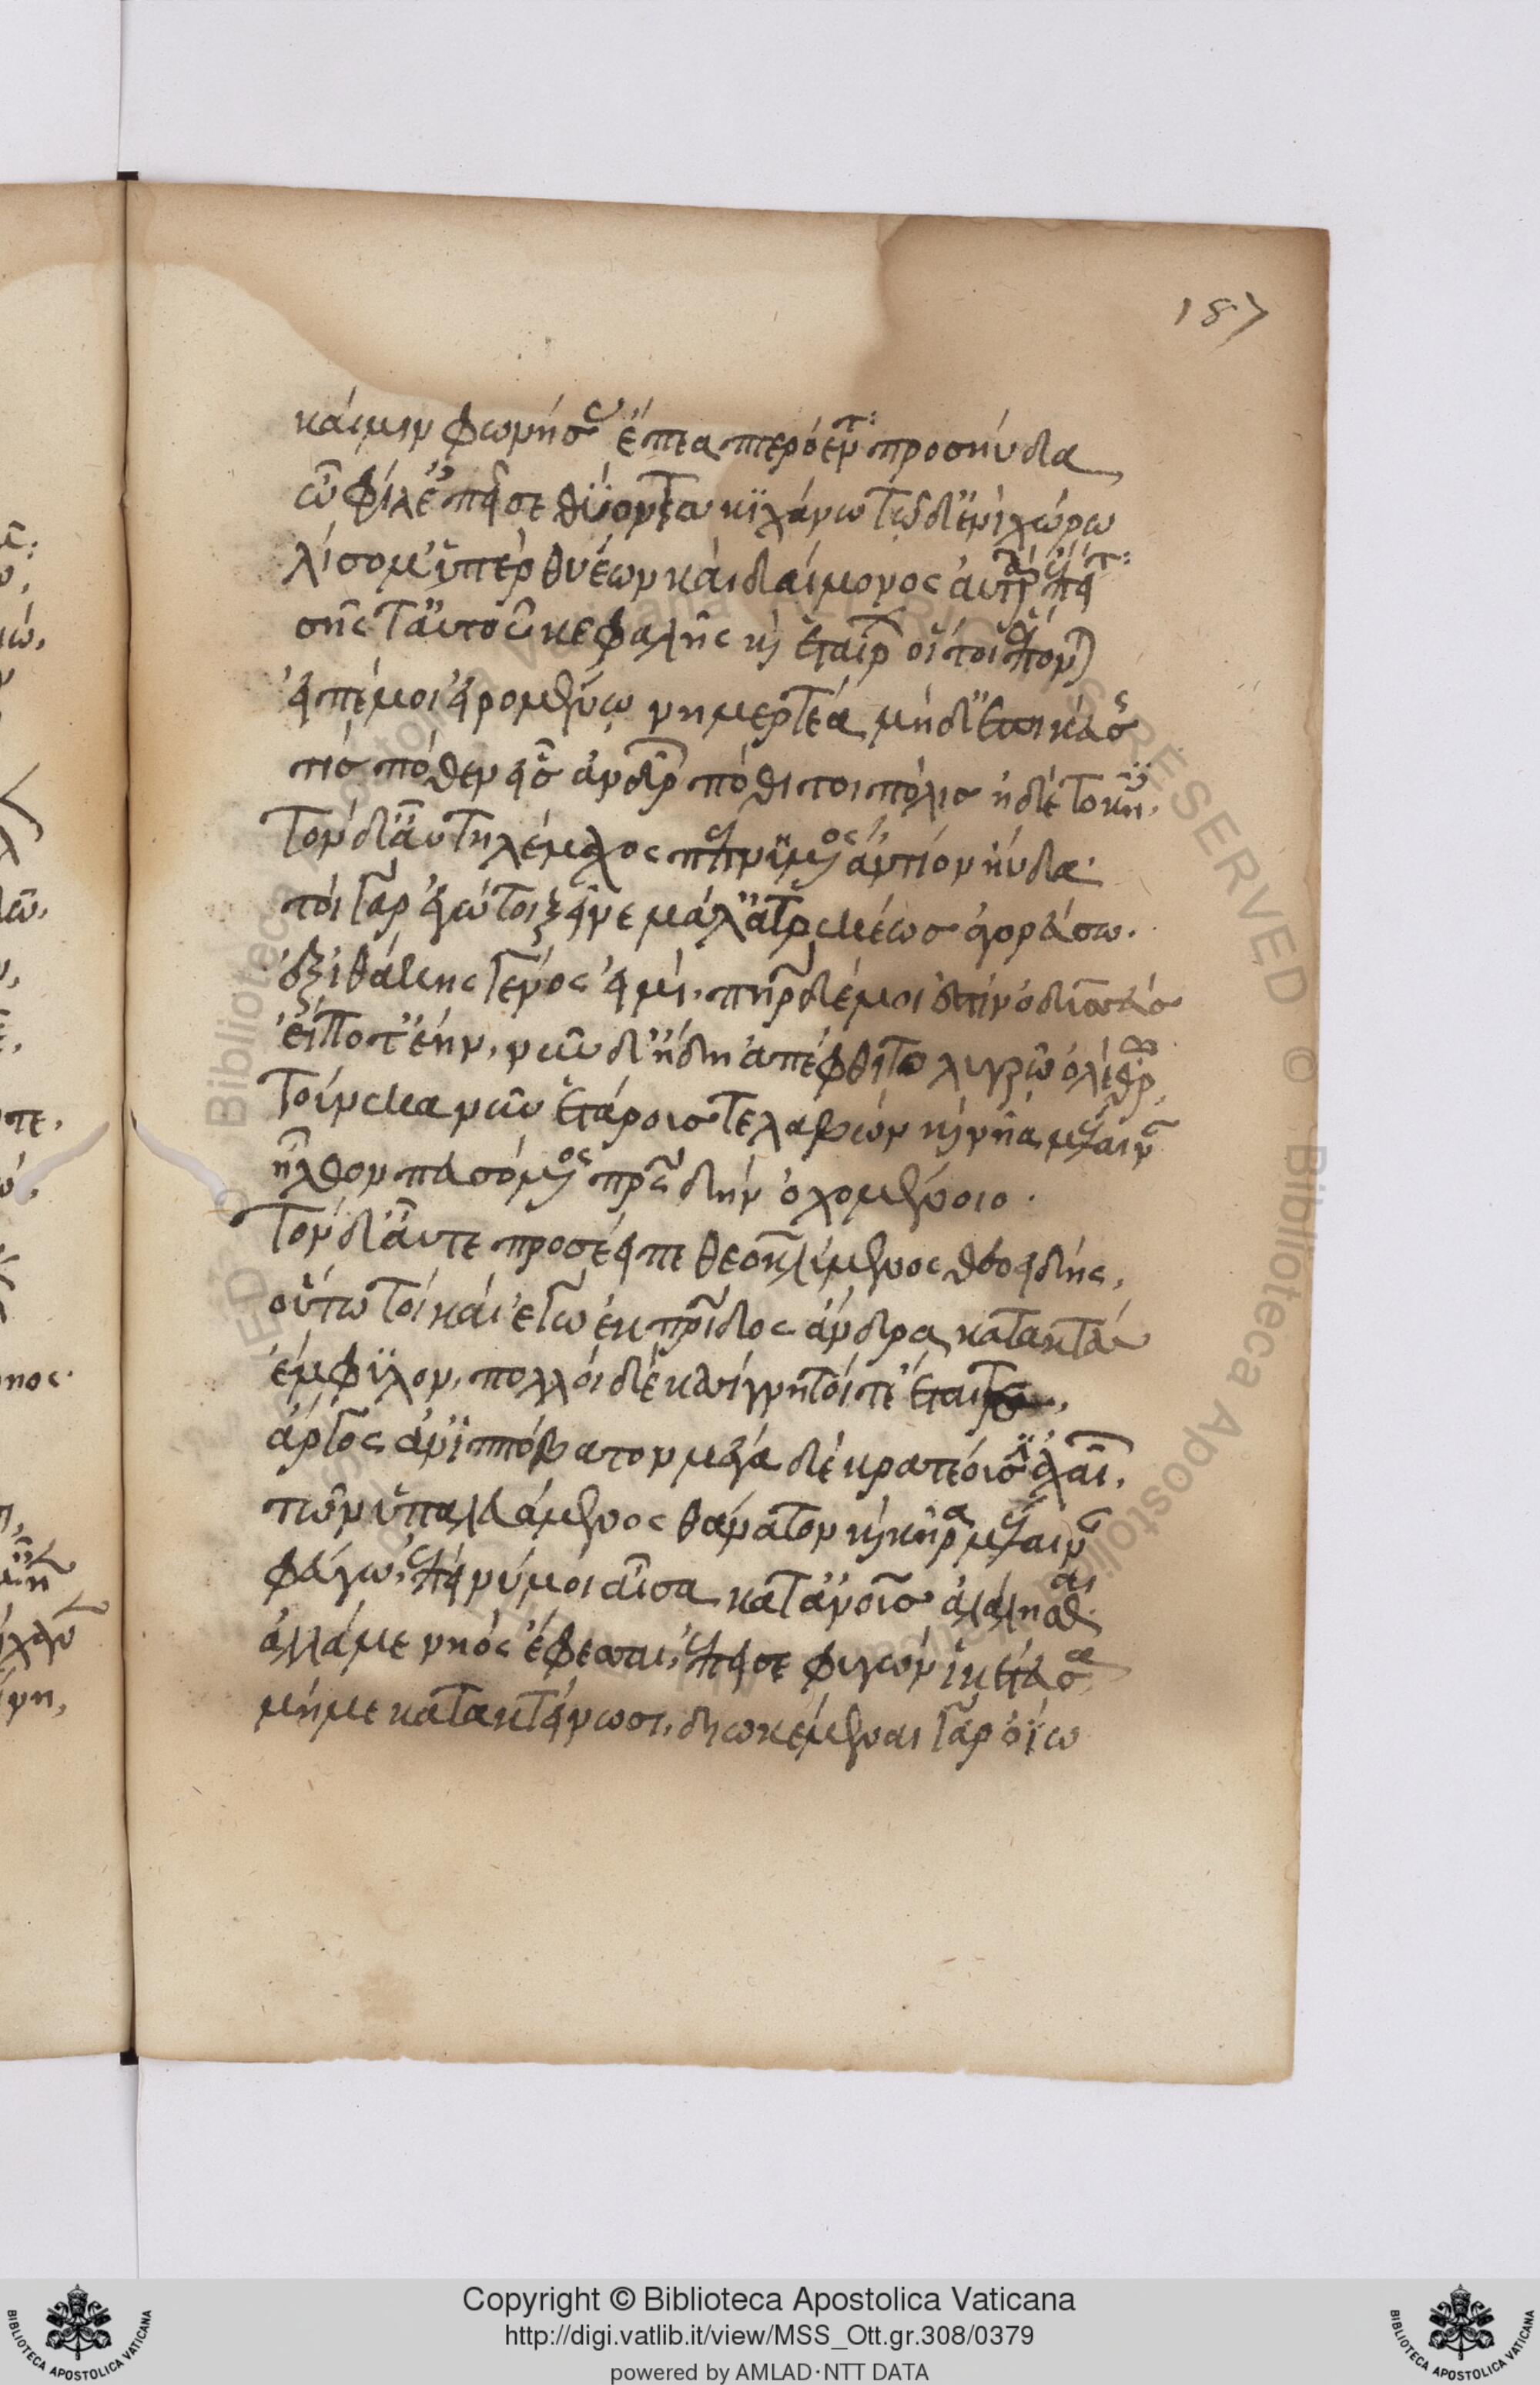 187
καί μιν φωνήσας ἔπεα πτερόεντα προσηύδα
ὦ φίλ' ἐπεί σε θύοντα κιχάνω τῶδ' ἐνὶ χώρω
λίσομ' ὑπὲρ θυέων καὶ δαίμονος αὐτὰρ ἔπειτα
σῆς τ' αὐτοῦ κεφαλῆς κ(αὶ) ἑταίρων οἵ τοι ἕπονται
εἰπέ μοι εἰρομένω νημερτέα μηδ' ἐπικεύσης
τίς πόθεν εἶς ἀνδρῶν πόθι τοι πόλις ἠδὲ τοκῆες.
Τὸν δ' αὖ Τηλέμαχος πεπνυμένος ἀντίον ηὔδα
τοὶ γὰρ ἐγώ τοι ξεῖνε μάλ' ἀτρεκέως ἀγορεύσω.
ἐξ ἰθάκης γένος εἰμί. πατὴρ δέ μοι ἐστὶν ὀδυσσεύς
εἴ ποτ' ἔην, νῦν δ' ἤδη ἀπέφθιτο λυγρῶ ὀλέθρω.
τοὔνεκα νῦν ἑτάρους τε λαβὼν κ(αὶ) νῆα μέλαιναν
ἦλθον πευσόμενος πατρὸς δὴν οἰχομένοιο.
Τὸν δ' αὖτε προσέειπε θεοκλύμενος θεοειδής,
οὕτω τοι καὶ ἐγὼν ἐκ πατρίδος ἄνδρα κατακτάς
ἔμφυλον, πολλοὶ δὲ κασίγνητοί τε ἔται τε,
ἄργος ἀν' ἱππόβατον μέγα δὲ κρατέουσιν ἀχαιῶν.
τῶν ὑπαλευάμενος θάνατον κ(αὶ) κῆρα μέλαιναν
φεύγω, ἐπεί νύ μοι αἶσα κατ' ἀνθρώπους ἀλάλησθαι
ἀλλά με νηὸς ἔφεσσαι, ἐπεί σε φυγὼν ἱκέτευσα
μή με κατακτείνωσι, διωκέμεναι γὰρ ὀΐω
Copyright © Biblioteca Apostolica Vaticana
http://digi.vatlib.it/view/MSS_Ott.gr.308/0379
powered by AMLAD·NTT DATA